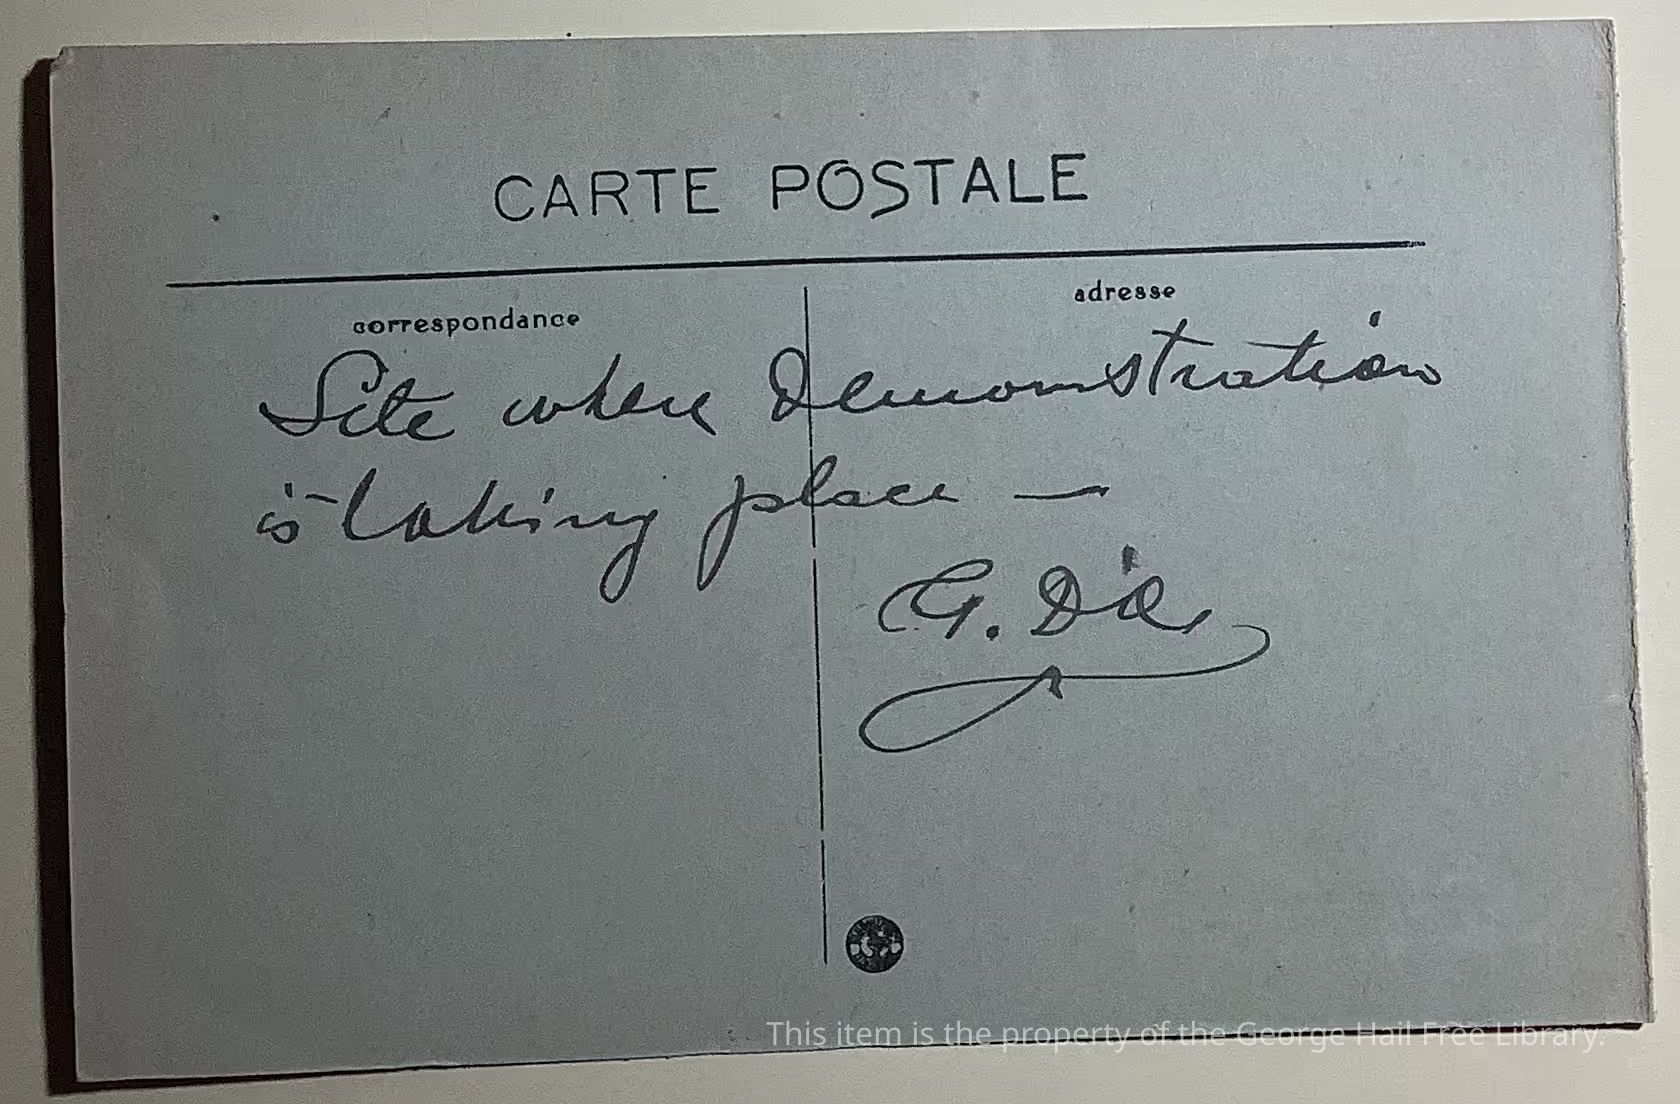 CARTE POSTALE
correspondance
adresse
Site where Demonstration
is taking place —
G. D
This item is the property of the George Hail Free Library.